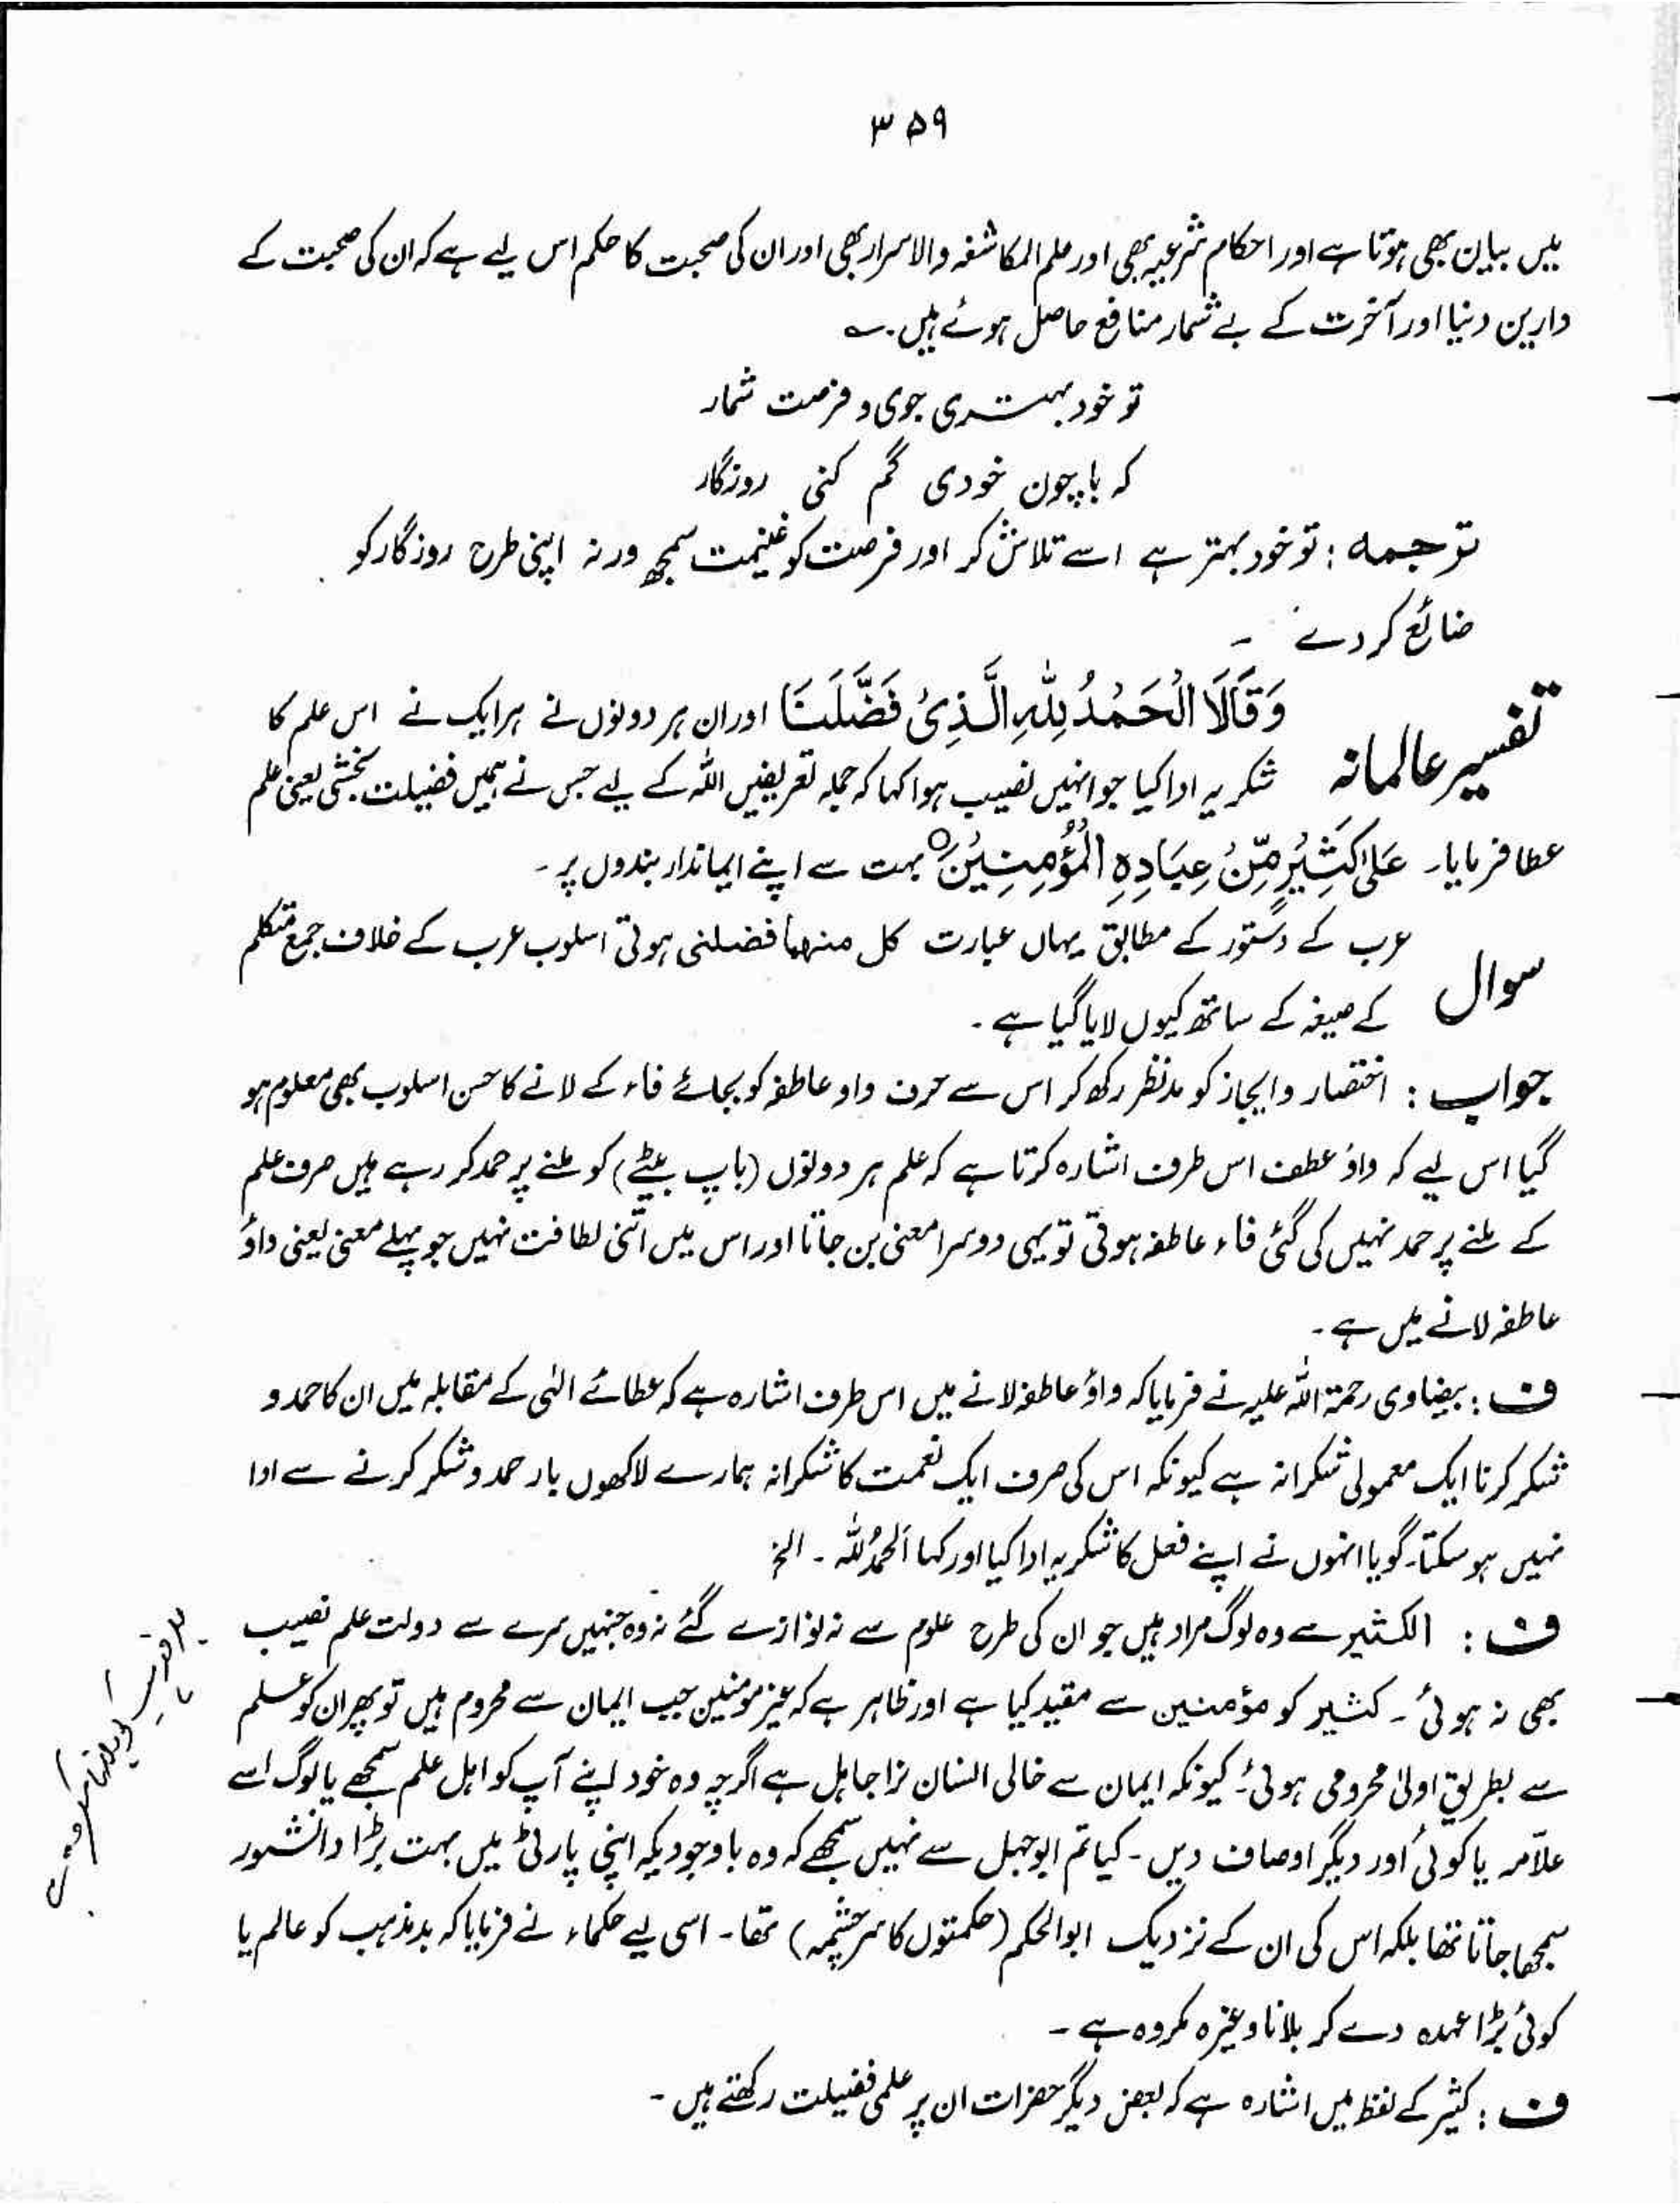 ۳۵۹
میں بیان بھی ہوتا ہے اور احکام شرعیہ بھی اور علم المکاشفہ والاسرار بھی اور ان کی صحبت کا حکم اس لیے ہے کہ ان کی صحبت کے
دارین دنیا اور آخرت کے بے شمار منافع حاصل ہوئے ہیں۔ ؎
تو خود بہتری جوی و فرصت شمار
کہ باچون خودی گم کنی روزگار
ترجمہ : تو خود بہتر ہے اسے تلاش کر اور فرصت کو غنیمت سمجھ ورنہ اپنی طرح روزگار کو
ضائع کر دے ۔
تفسیر عالمانہ وَقَالَا الْحَمْدُ لِلّٰهِ الَّذِیْ فَضَّلَنَا اور ان ہر دونوں نے ہر ایک نے اس علم کا
شکریہ ادا کیا جو انہیں نصیب ہوا کہا کہ جملہ تعریفیں اللہ کے لیے جس نے ہمیں فضیلت بخشی یعنی علم
عطا فرمایا۔ عَلٰی كَثِیْرٍ مِّنْ عِبَادِهِ الْمُؤْمِنِیْنَ○ بہت سے اپنے ایماندار بندوں پر ۔
سوال عرب کے دستور کے مطابق یہاں عبارت کل منہما فضلنی ہوتی اسلوب عرب کے خلاف جمع متکلم
کے صیغہ کے ساتھ کیوں لایا گیا ہے ۔
جواب : اختصار و ایجاز کو مدنظر رکھ کر اس سے حرف واو عاطفہ کو بجائے فاء کے لانے کا حسن اسلوب بھی معلوم ہو
گیا اس لیے کہ واؤ عطف اس طرف اشارہ کرتا ہے کہ علم ہر دونوں (باپ بیٹے) کو ملنے پر حمد کر رہے ہیں صرف علم
کے ملنے پر حمد نہیں کی گئی فاء عاطفہ ہوتی تو یہی دوسرا معنی بن جاتا اور اس میں اتنی لطافت نہیں جو پہلے معنی یعنی واؤ
عاطفہ لانے میں ہے ۔
ف : بیضاوی رحمۃ اللہ علیہ نے فرمایا کہ واؤ عاطفہ لانے میں اس طرف اشارہ ہے کہ عطائے الٰہی کے مقابلہ میں ان کا حمد و
شکر کرنا ایک معمولی شکرانہ ہے کیونکہ اس کی صرف ایک نعمت کا شکرانہ ہمارے لاکھوں بار حمد و شکر کرنے سے ادا
نہیں ہو سکتا۔ گویا انہوں نے اپنے فعل کا شکریہ ادا کیا اور کہا اَلحمدُ للہ ۔ الخ
ف : الکثیر سے وہ لوگ مراد ہیں جو ان کی طرح علوم سے نہ نوازے گئے نہ وہ جنہیں سرے سے دولت علم نصیب
بھی نہ ہوئی ۔ کثیر کو مؤمنین سے مقید کیا ہے اور ظاہر ہے کہ غیر مومنین جب ایمان سے محروم ہیں تو پھر ان کو علم
سے بطریق اولیٰ محرومی ہوئی۔ کیونکہ ایمان سے خالی انسان نرا جاہل ہے اگرچہ وہ خود اپنے آپ کو اہل علم سمجھے یا لوگ اسے
علّامہ یا کوئی اور دیگر اوصاف دیں ۔ کیا تم ابوجہل سے نہیں سمجھے کہ وہ باوجودیکہ اپنی پارٹی میں بہت بڑا دانشور
سمجھا جاتا تھا بلکہ اس کی ان کے نزدیک ابوالحکم (حکمتوں کا سرچشمہ) تھا ۔ اسی لیے حکماء نے فرمایا کہ بدمذہب کو عالم یا
کوئی بڑا عہدہ دے کر بلانا وغیرہ مکروہ ہے ۔
ف : کثیر کے لفظ میں اشارہ ہے کہ بعض دیگر حضرات ان پر علمی فضیلت رکھتے ہیں ۔